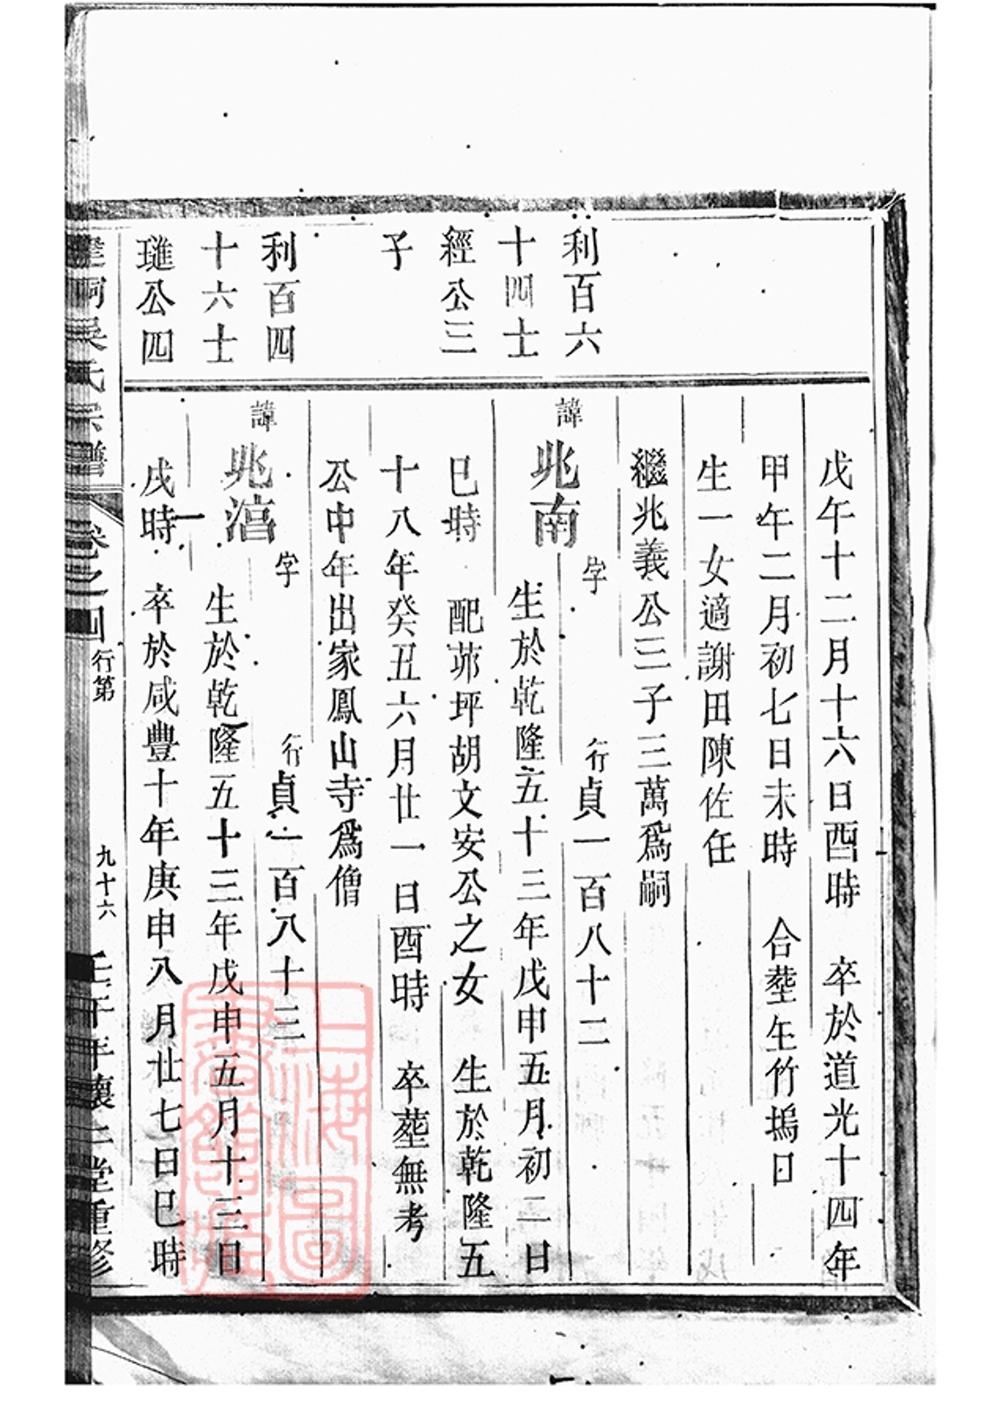 戊午十二月十六日酉時　卒於道光十四年
甲午二月初七日未時　合塟生竹塢口
生一女適謝田陳佐任
繼兆義公三子三萬爲嗣
利百六
十四士
經公三
子
諱兆南　字　行貞一百八十二
生於乾隆五十三年戊申五月初二日
巳時　配茆坪胡文安公之女　生於乾隆五
十八年癸丑六月廿一日酉時　卒塟無考
公中年出家鳳山寺爲僧
利百四
十六士
璡公四
諱兆湻　字　行貞一百八十三
生於乾隆五十三年戊申五月十三日
戌時　卒於咸豐十年庚申八月廿七日巳時
吳氏宗譜　卷之四　行第　九十六　壬午年懷仁堂重修
上海圖
書館藏